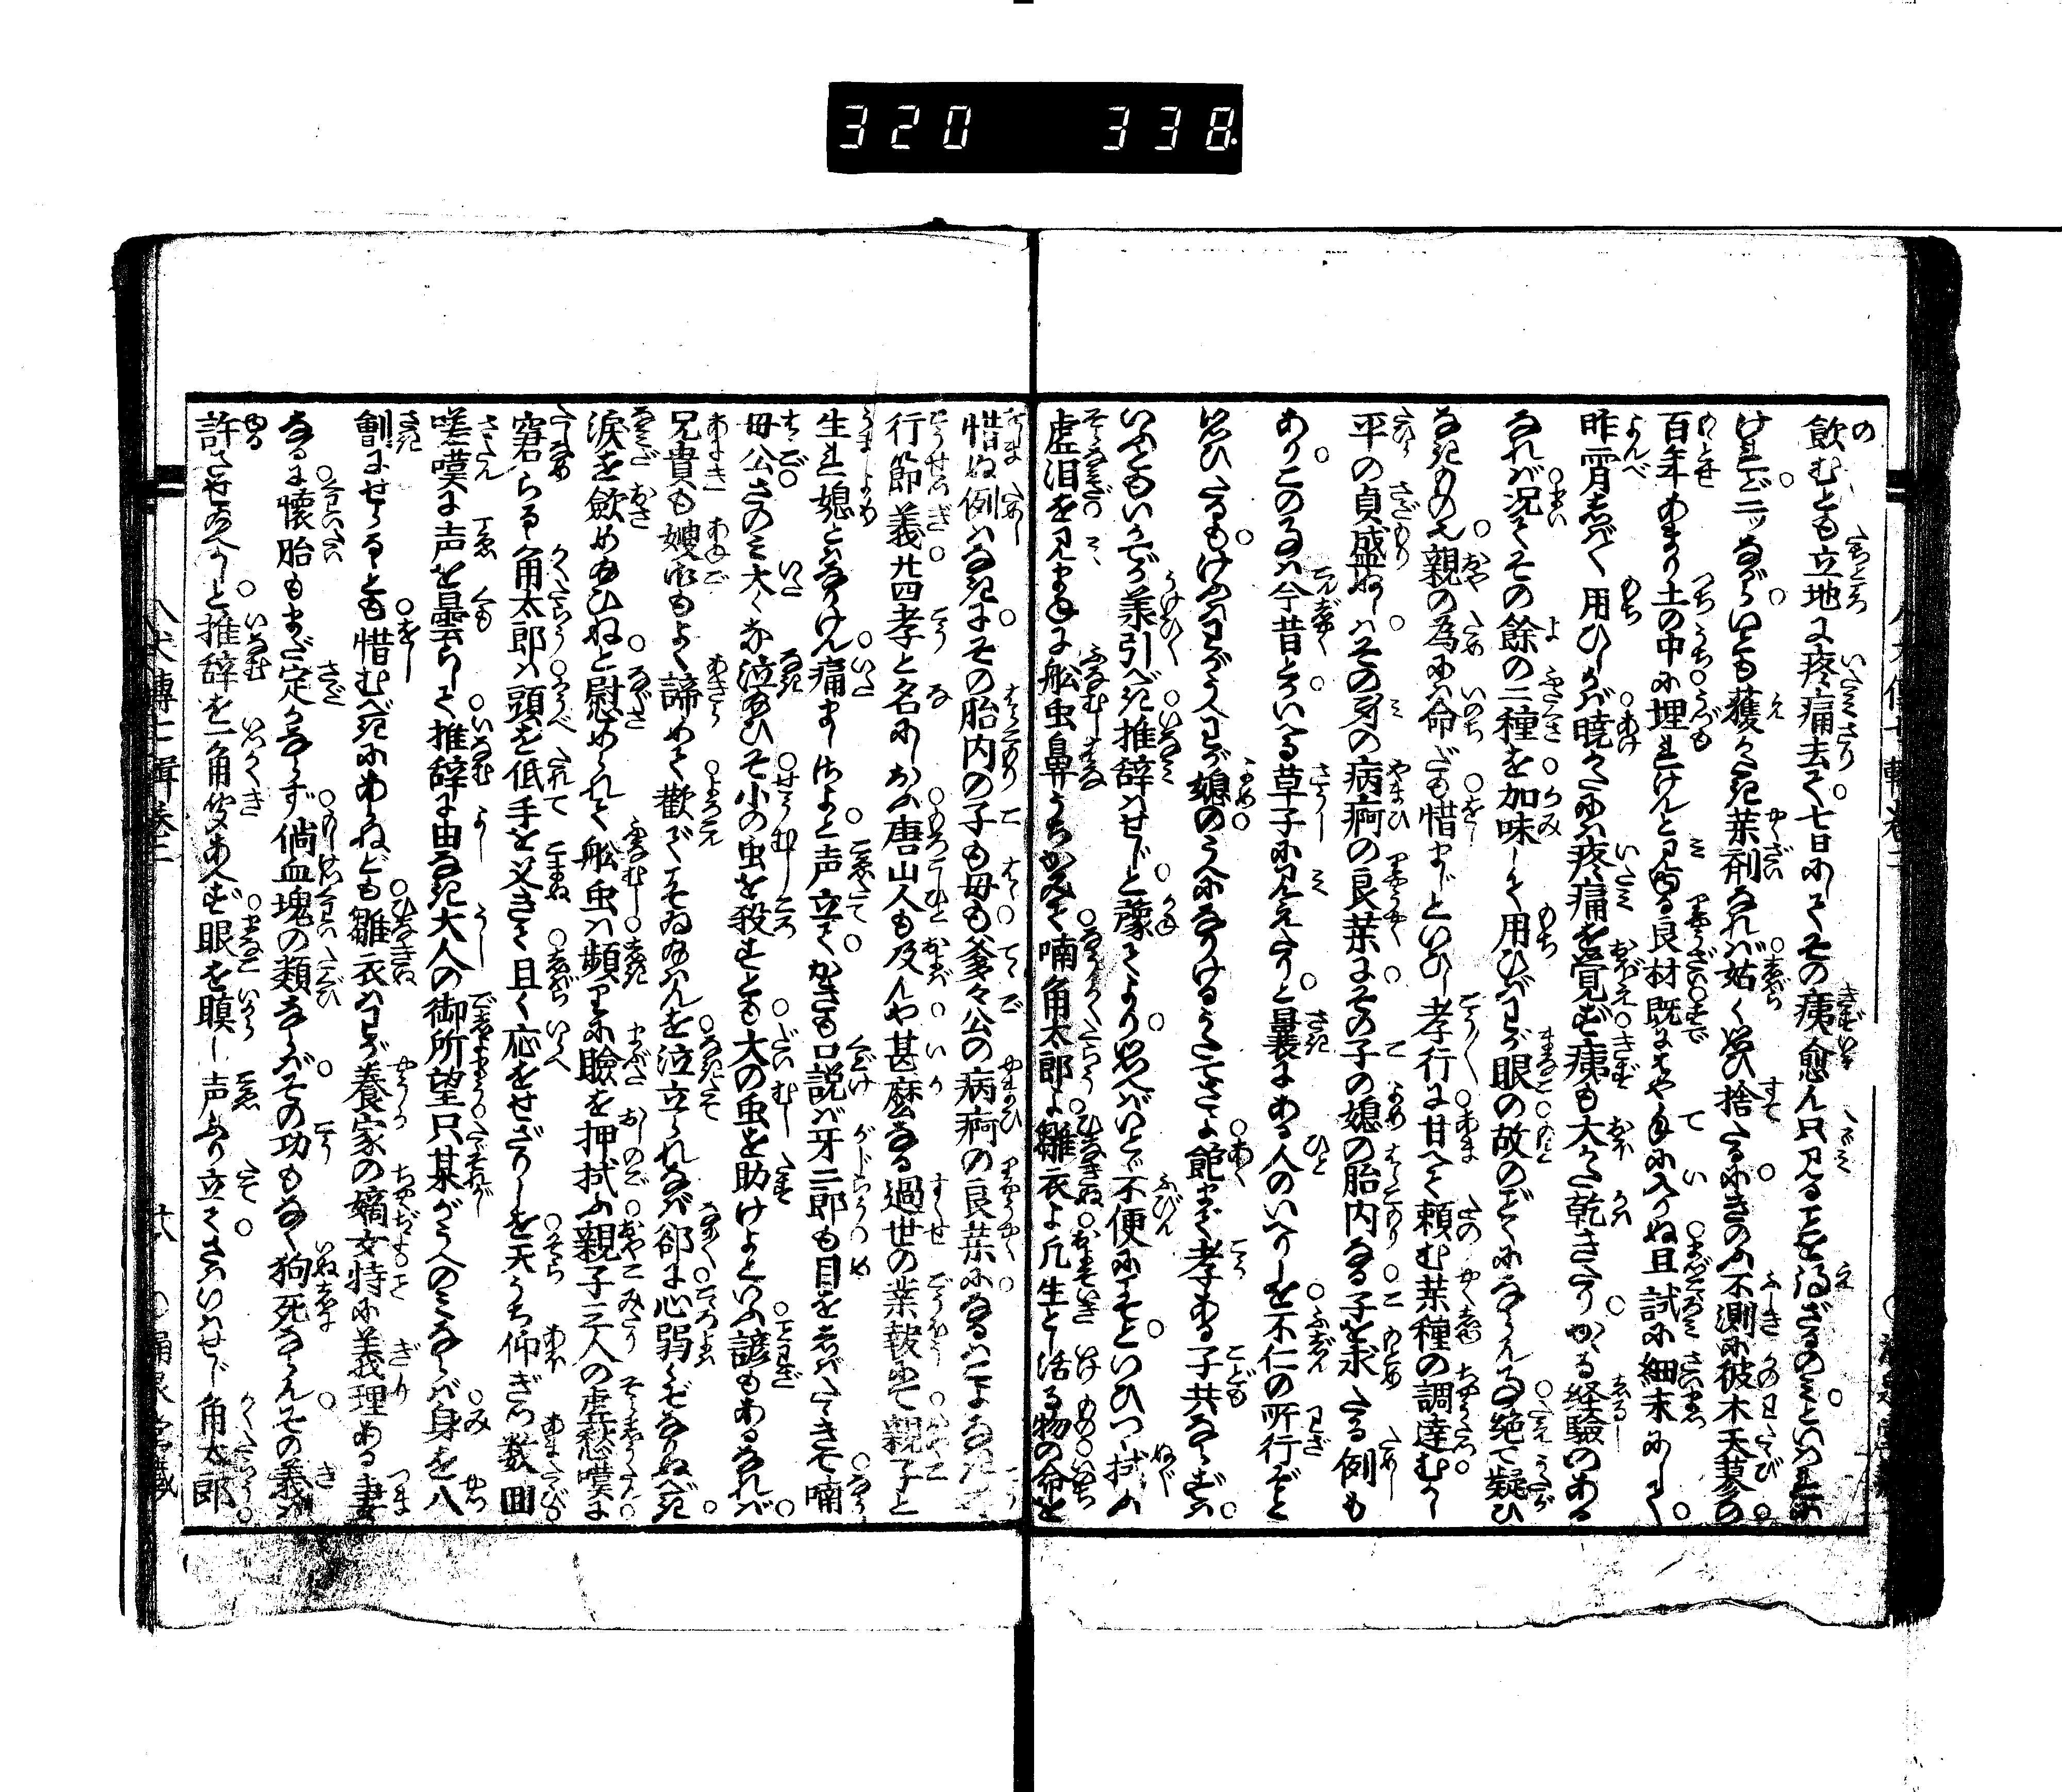 320 338
飲むとも立地に疼痛去て七日にしてその痍愈ん只見ることを得ざるのミといはれに
けれど二ッながらいとも獲がたき薬剤なれば姑く思ひ捨たるにきのふ不測に彼木天蓼の
百年あまり土の中に埋れけんと見ゆる良材既にはや手に入りぬ且試に細末にして
昨宵しばしば用ひしかば暁がたには疼痛を覚ず痍も大かた乾きたりかかる経験のある
なれば况てその餘の二種を加味して用ひばわが眼の故のごとくになりなん事絶て疑ひ
なきものを親の為には命だも惜まじといひし孝行に甘へて頼む薬種の調達むかし
平の貞盛ぬしはその身の病痾の良薬にその子の媳の胎内なる子を求たる例も
ありこの事は今昔とかいへる草子に見えたりと曩にある人のいへりしを不仁の所行ぞと
思ひたるもけふはわがうへわが媳のうへになりけるよさてさても飽まで孝ある子共ならずは
いふともいかでか羕引べき推辞はせじと豫てより思へばいとど不便にこそといひつつ拭ふ
虚泪を見まねに舩虫鼻うちかみて喃角太郎よ雛衣よ凡生とし活る物の命を
惜ぬ例はなきにその胎内の子も母も爹々公の病痾の良薬になるはこよなき
行節義廿四孝と名にしおふ唐山人も及んや甚麼なる過世の業報にて親子と
生れ媳となりけん痛ましけれと声立てかきも口説ば牙二郎も目をしばたたきて喃
母公さのミ大く亦泣給ひそ小の虫を殺すとも大の虫を助けよといふ諺もあるなれば
兄貴も嫂御もよく諦めて歡びてこそゐ給はんを泣立られなば郤に心弱くぞなりぬべき
涙を歛め給ひねと慰められて舩虫は頻りに瞼を押拭ふ親子三人の虚愁嘆に
窘らるる角太郎は頭を低手を叉きて且く応をせざりしを天うち仰ぎつ数回
嗟嘆に声を曇らして推辞に由なき大人の御所望只某がうへのミならば身を八
劃にせらるるとも惜むべきにあらねども雛衣はわが養家の嫡女特に義理ある妻
なるに懐胎もまだ定かならず倘血塊の類ならばその功もなく狗死ならんその義は
許させ給へかしと推辞を一角聞あへず眼を瞋し声ふり立てさはいはせじ角太郎